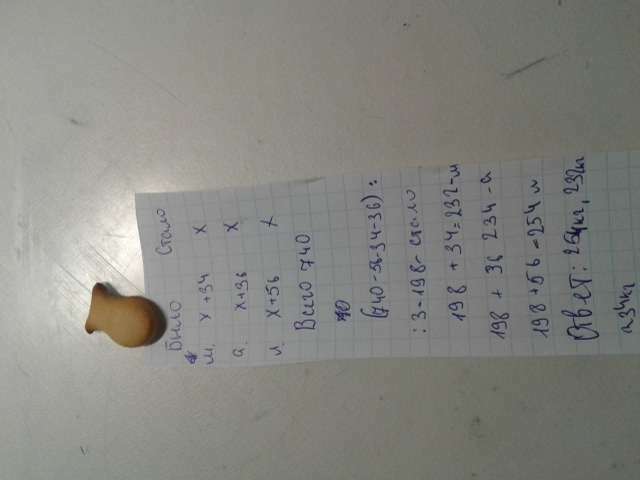 Было Стало
м. x+34 x
а. x+36 x
л. x+56 x
Всего 740
(740-56-34-36):
:3=198-стало
198+34=232-м
198+36 234-а
198+56=254 л
Ответ: 254кг, 232кг
234кг